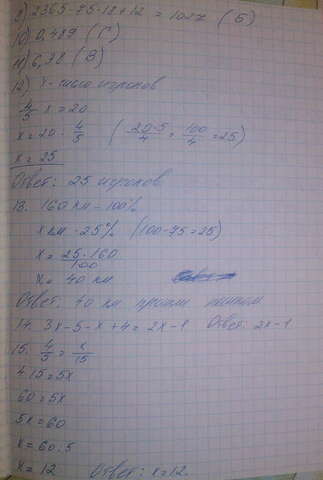 9) 2365-75·18+12 = 1027 (Б)
10) 0,489 (Г)
11) 6,38 (В)
12) х - число игроков
4/5 х = 20
х = 20 · 4/5 (20·5/4 = 100/4 = 25)
х = 25
Ответ: 25 игроков
13. 160 км - 100%
х км - 25% (100-75=25)
х = 25·160/100
х = 40 км
Ответ: 40 км прошли
14. 3х-5-х+4 = 2х-1 Ответ: 2х-1
15. 4/5 = х/15
4·15=5х
60=5х
5х=60
х=60:5
х = 12 Ответ: х=12.